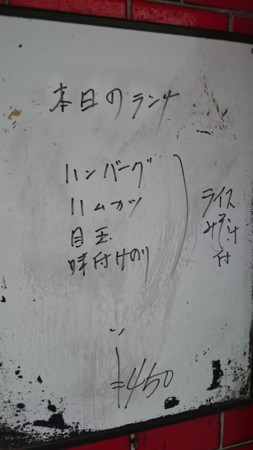 本日のランチ
ハンバーグ
ハムカツ
目玉
味付けのり
ライス
みそ汁
付
=450